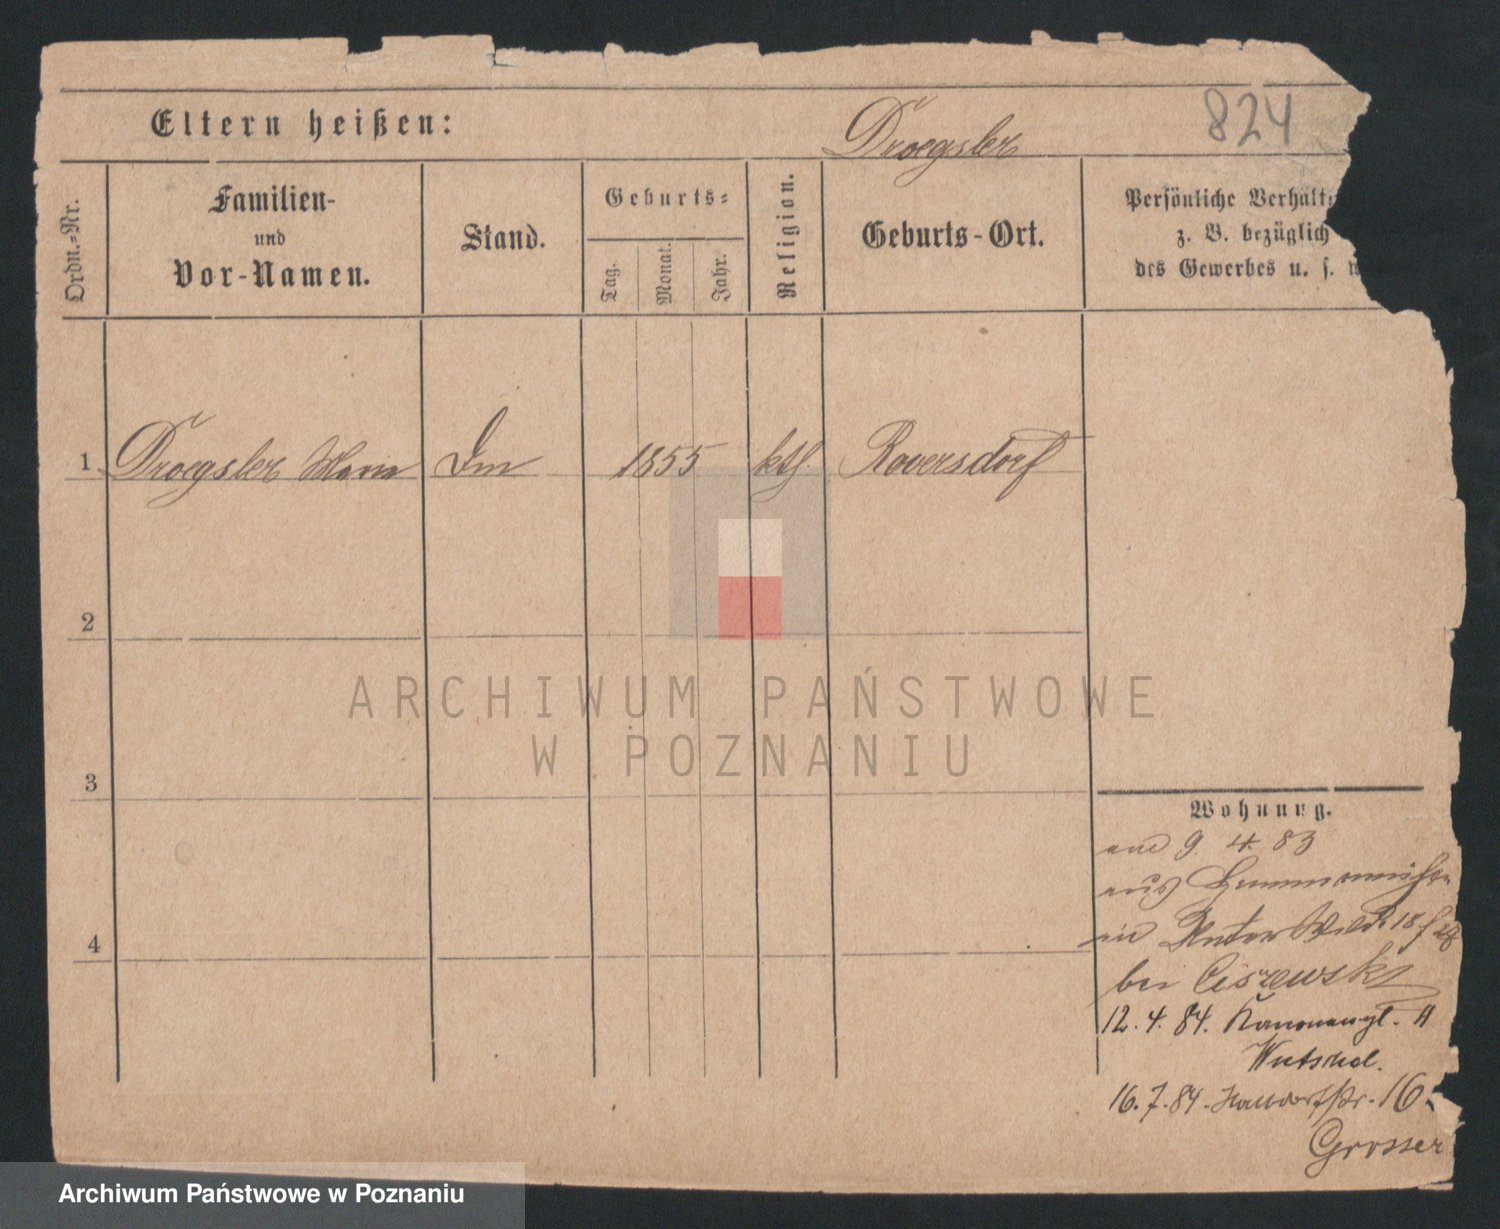 824
Eltern heißen:
Droegsler
Ordn.-Nr.
Familien-
und
Vor-Namen.
Stand.
Geburts-
Tag.
Monat.
Jahr.
Religion.
Geburts-Ort.
Persönliche Verhält
z. B. bezüglich
des Gewerbes u. s. w
1 Droegsler Maria 1855 kth. Roversdorf
2
3
4
Wohnung.
9. 4. 83
aus
in Unter Wilda 18
bei Ciszewski
12. 4. 84. Kanonenpl. 11
16. 7. 84. 16
Grosser
ARCHIWUM PAŃSTWOWE
W POZNANIU
Archiwum Państwowe w Poznaniu